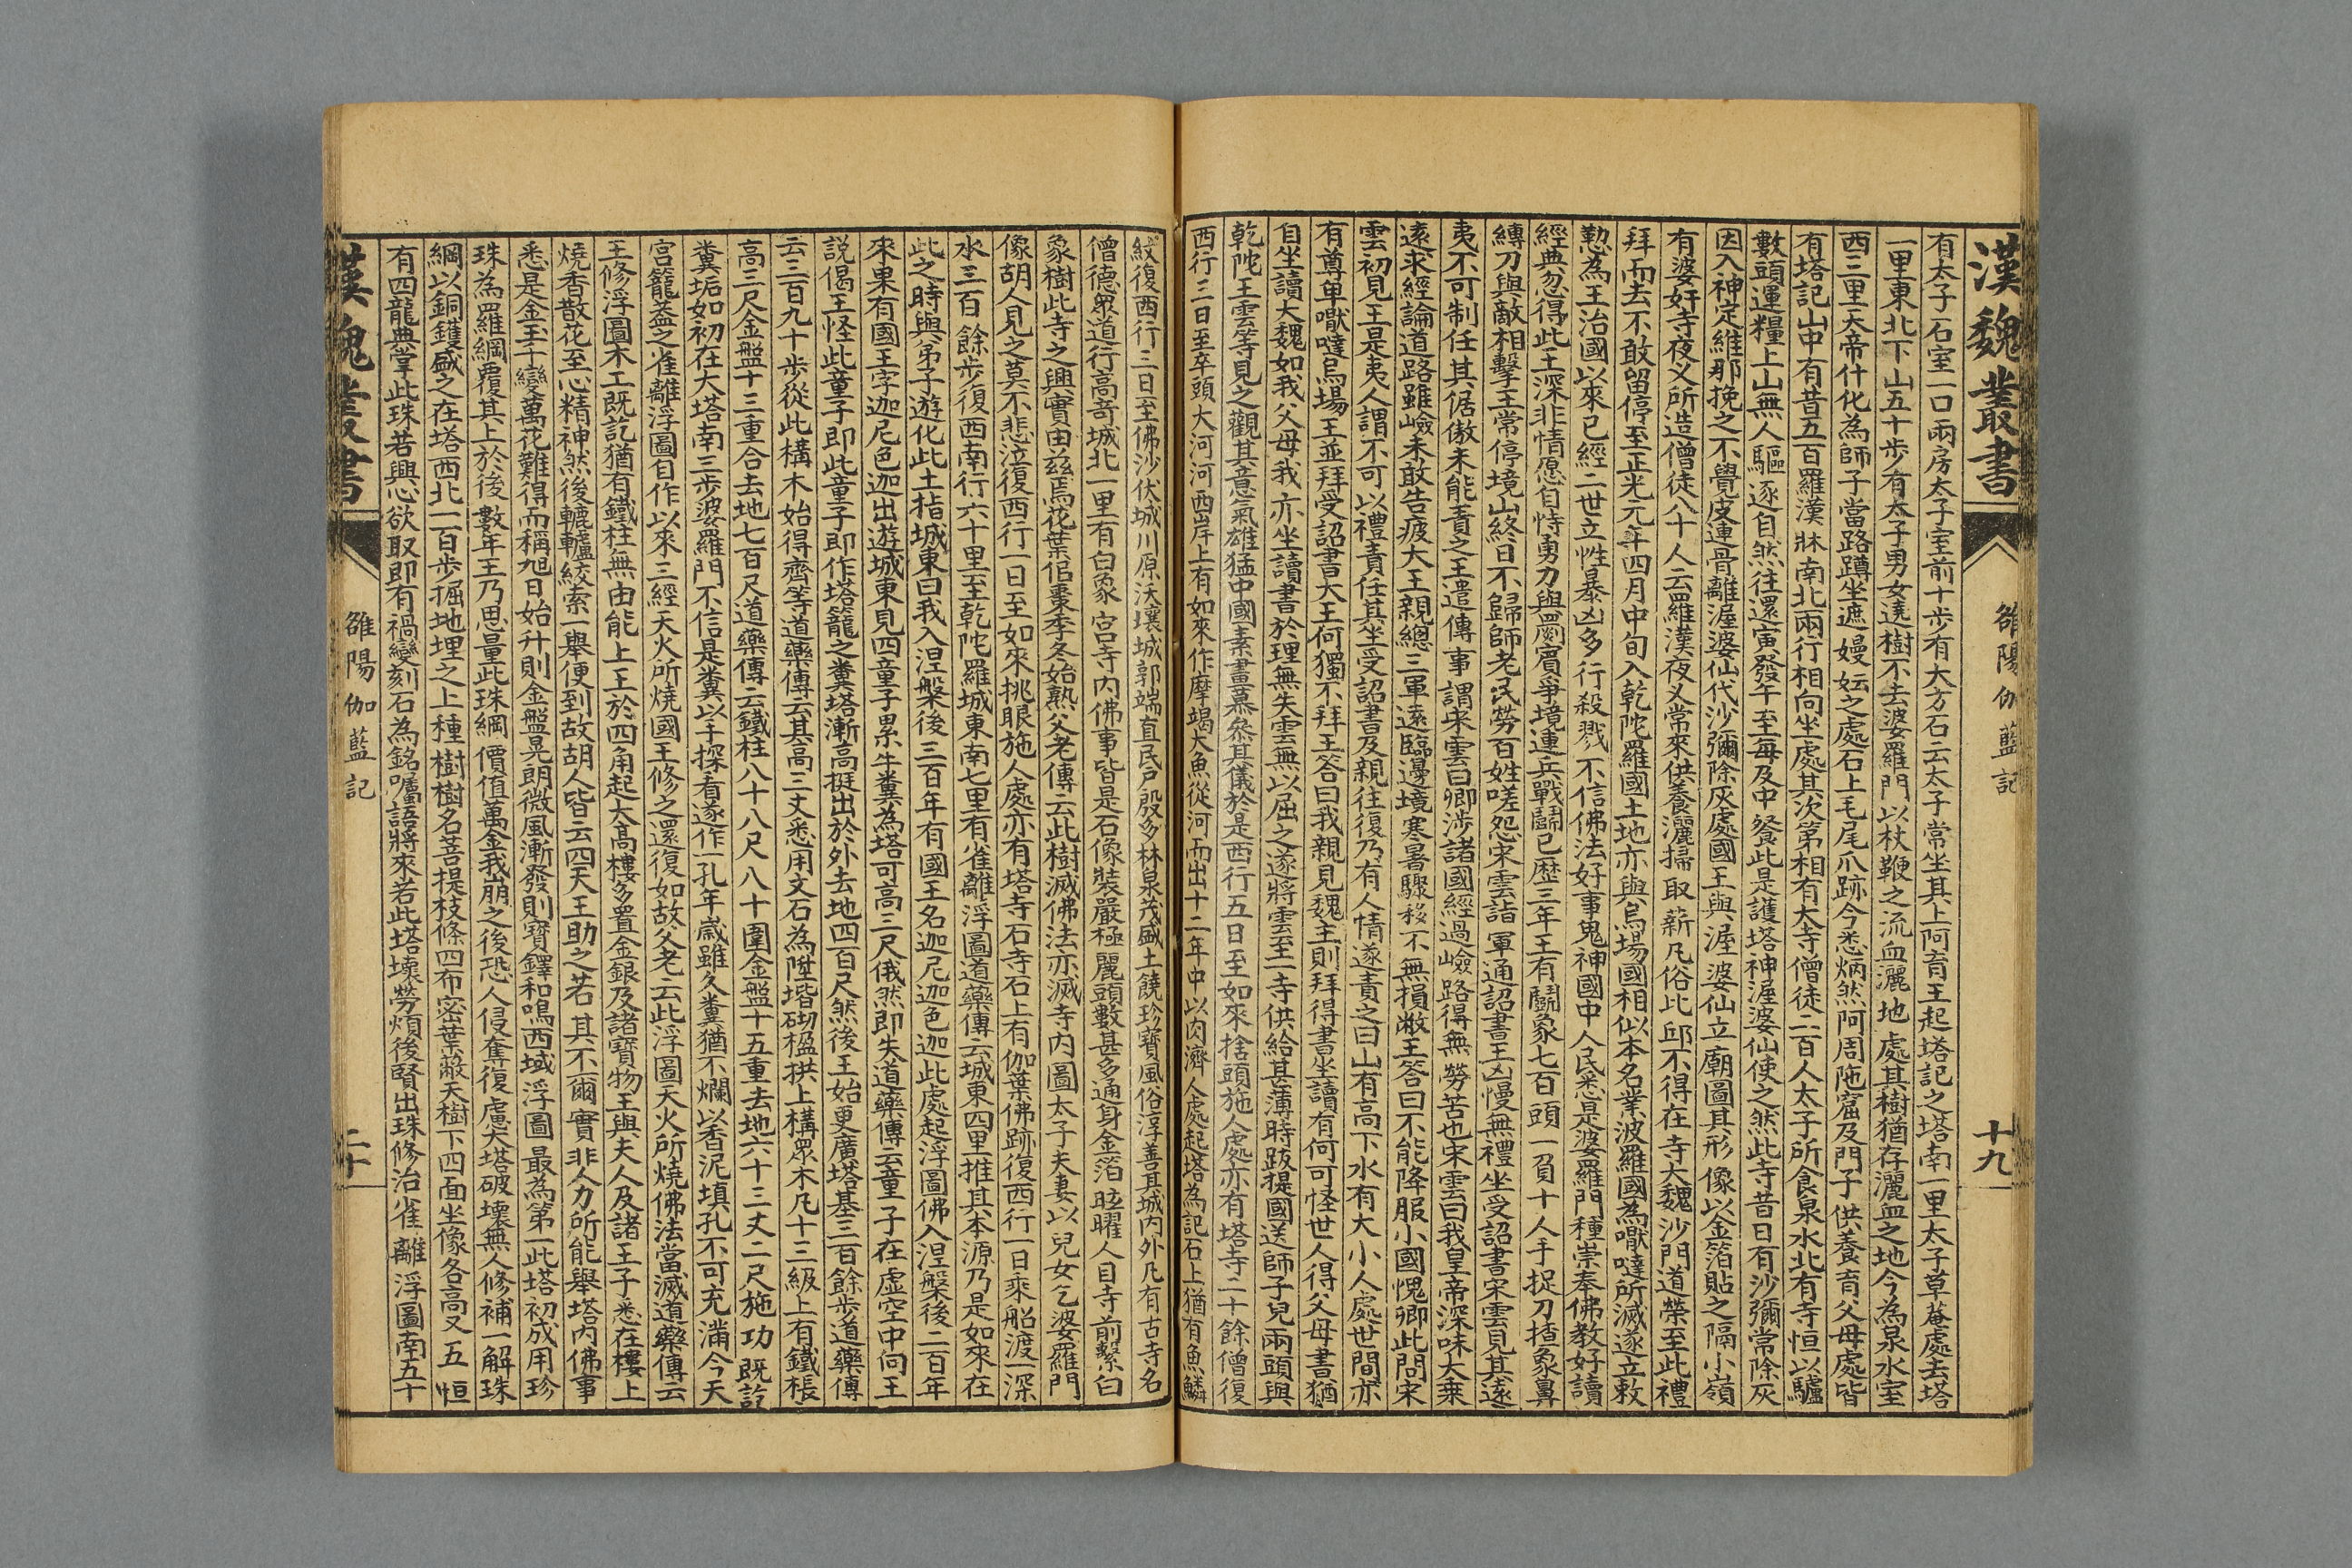 漢魏叢書
雒陽伽藍記
十九
有太子石室一口兩房太子室前十步有大方石云太子常坐其上阿育王起塔記之塔南一里太子草菴處去塔
一里東北下山五十步有太子男女遶樹不去婆羅門以杖鞭之流血灑地處其樹猶存灑血之地今為泉水室
西三里天帝什化為師子當路蹲坐遮嫚妘之處石上毛尾爪跡今悉炳然阿周陁窟及門子供養盲父母處皆
有塔記山中有昔五百羅漢牀南北兩行相向坐處其次第相有大寺僧徒二百人太子所食泉水北有寺恒以驢
數頭運糧上山無人驅逐自然往還寅發午至每及中飡此是護塔神渥婆仙使之然此寺昔日有沙彌常除灰
因入神定維那挽之不覺皮連骨離渥婆仙代沙彌除灰處國王與渥婆仙立廟圖其形像以金箔貼之隔小嶺
有婆奸寺夜乂所造僧徒八十人云羅漢夜乂常來供養灑掃取薪凡俗比邱不得在寺大魏沙門道榮至此禮
拜而去不敢留停至正光元年四月中旬入乾陀羅國土地亦與烏場國相似本名業波羅國為嚈噠所滅遂立敕
懃為王治國以來已經二世立性暴凶多行殺戮不信佛法好事鬼神國中人民悉是婆羅門種崇奉佛教好讀
經典忽得此王深非情愿自恃勇力與罽賓爭境連兵戰鬭已歷三年王有鬭象七百頭一負十人手捉刀揸象鼻
縛刀與敵相擊王常停境山終日不歸師老民勞百姓嗟怨宋雲詣軍通詔書王凶慢無禮坐受詔書宋雲見其遠
夷不可制任其倨傲未能責之王遣傳事謂宋雲曰卿涉諸國經過嶮路得無勞苦也宋雲曰我皇帝深味大乗
遠求經論道路雖嶮未敢告疲大王親總三軍遠臨邊境寒暑驟移不無損敝王答曰不能降服小國愧卿此問宋
雲初見王是夷人謂不可以禮責任其坐受詔書及親往復乃有人情遂責之曰山有高下水有大小人處世間亦
有尊卑嚈噠烏場王並拜受詔書大王何獨不拜王答曰我親見魏主則拜得書坐讀有何可怪世人得父母書猶
自坐讀大魏如我父母我亦坐讀書於理無失雲無以屈之遂將雲至一寺供給甚薄時跋提國送師子兒兩頭與
乾陀王雲等見之觀其意氣雄猛中國素畫慕叅其儀於是西行五日至如來捨頭施人處亦有塔寺二十餘僧復
西行三日至卒頭大河河西岸上有如來作摩竭大魚從河而出十二年中以肉濟人處起塔為記石上猶有魚鱗
紋復西行三日至佛沙伏城川原沃壤城郭端直民戶殷多林泉茂盛土饒珍寶風俗淳善其城內外凡有古寺名
僧德眾道行高奇城北一里有白象宮寺內佛事皆是石像裝嚴極麗頭數甚多通身金箔眩曜人目寺前繫白
象樹此寺之興實由兹焉花葉佀棗季冬始熟父老傳云此樹滅佛法亦滅寺內圖太子夫妻以兒女乞婆羅門
像胡人見之莫不悲泣復西行一日至如來挑眼施人處亦有塔寺石寺石上有伽葉佛跡復西行一日乘船渡一深
水三百餘步復西南行六十里至乾陀羅城東南七里有雀離浮圖道藥傳云城東四里推其本源乃是如來在
此之時與弟子遊化此土指城東曰我入涅槃後三百年有國王名迦尼迦色迦此處起浮圖佛入涅槃後二百年
來果有國王字迦尼色迦出遊城東見四童子累牛糞為塔可高三尺俄然即失道藥傳云童子在虛空中向王
說偈王怪此童子即此童子即作塔籠之糞塔漸高挺出於外去地四百尺然後王始更廣塔基三百餘步道藥傳
云三百九十步從此構木始得齊等道藥傳云其高三丈悉用文石為陛堦砌櫨拱上構眾木凡十三級上有鐵棖
高三尺金盤十三重合去地七百尺道藥傳云鐵柱八十八尺八十圍金盤十五重去地六十三丈二尺施功既訖
糞垢如初在大塔南三步婆羅門不信是糞以手探看遂作一孔年歲雖久糞猶不爛以香泥填孔不可充滿今天
宮籠蓋之雀離浮圖自作以來三經天火所燒國王修之還復如故父老云此浮圖天火所燒佛法當滅道藥傳云
王修浮圖木工既訖猶有鐵柱無由能上王於四角起大高樓多置金銀及諸寶物王與夫人及諸王子悉在樓上
燒香散花至心精神然後轆轤絞索一舉便到故胡人皆云四天王助之若其不爾實非人力所能舉塔內佛事
悉是金玉千變萬花難得而稱旭日始升則金盤晃朗微風漸發則寶鐸和鳴西域浮圖最為第一此塔初成用珍
珠為羅網覆其上於後數年王乃思量此珠網價值萬金我崩之後恐人侵奪復慮大塔破壞無人修補一解珠
網以銅鑊盛之在塔西北一百步掘地埋之上種樹樹名菩提枝條四布密葉蔽天樹下四面坐像各高又五恒
有四龍典掌此珠若興心欲取即有禍變刻石為銘囑語將來若此塔壞勞煩後賢出珠修治雀離浮圖南五十
漢魏叢書
雒陽伽藍記
二十